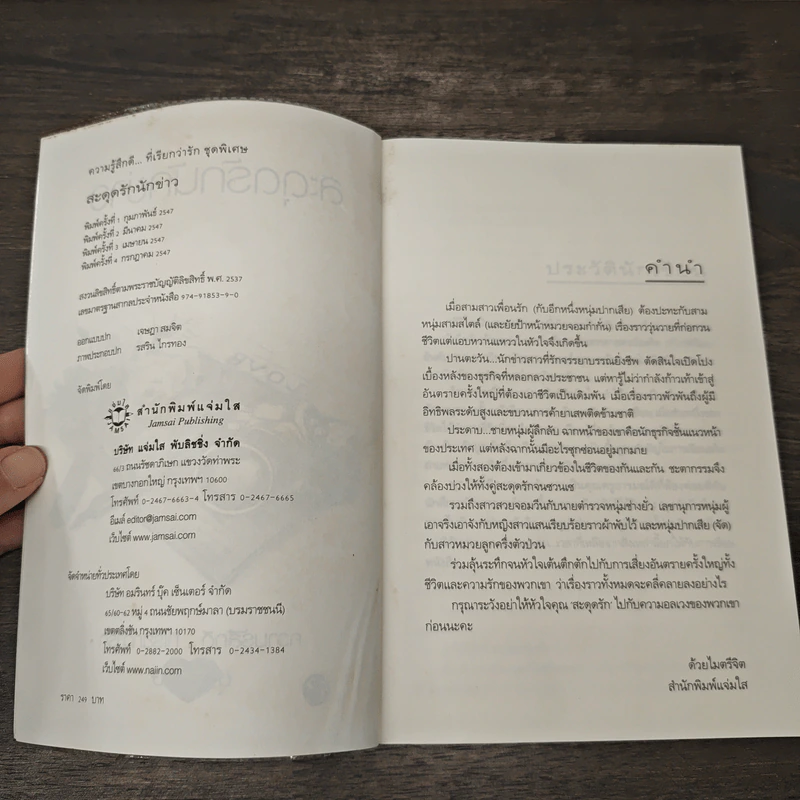 ความรู้สึกดี... ที่เรียกว่ารัก ชุดพิเศษ
สะดุดรักนักข่าว
พิมพ์ครั้งที่ 1 กุมภาพันธ์ 2547
พิมพ์ครั้งที่ 2 มีนาคม 2547
พิมพ์ครั้งที่ 3 เมษายน 2547
พิมพ์ครั้งที่ 4 กรกฎาคม 2547
สงวนลิขสิทธิ์ตามพระราชบัญญัติลิขสิทธิ์ พ.ศ. 2537
เลขมาตรฐานสากลประจำหนังสือ 974-91853-9-0
ออกแบบปก เจษฎา สมจิต
ภาพประกอบปก รสริน ไกรทอง
จัดพิมพ์โดย
สำนักพิมพ์แจ่มใส
Jamsai Publishing
บริษัท แจ่มใส พับลิชชิ่ง จำกัด
66/3 ถนนรัชดาภิเษก แขวงวัดท่าพระ
เขตบางกอกใหญ่ กรุงเทพฯ 10600
โทรศัพท์ 0-2467-6663-4 โทรสาร 0-2467-6665
อีเมล์ editor@jamsai.com
เว็บไซต์ www.jamsai.com
จัดจำหน่ายทั่วประเทศโดย
บริษัท อมรินทร์ บุ๊ค เซ็นเตอร์ จำกัด
65/60-62 หมู่ 4 ถนนชัยพฤกษ์มาลา (บรมราชชนนี)
เขตตลิ่งชัน กรุงเทพฯ 10170
โทรศัพท์ 0-2882-2000 โทรสาร 0-2434-1384
เว็บไซต์ www.naiin.com
ราคา 249 บาท
คำนำ
เมื่อสามสาวเพื่อนรัก (กับอีกหนึ่งหนุ่มปากเสีย) ต้องปะทะกับสาม
หนุ่มสามสไตล์ (และยัยป้าหน้าหมวยจอมกำกั่น) เรื่องราววุ่นวายที่ก่อกวน
ชีวิตแต่แอบหวานแหววในหัวใจจึงเกิดขึ้น
ปานตะวัน...นักข่าวสาวที่รักจรรยาบรรณยิ่งชีพ ตัดสินใจเปิดโปง
เบื้องหลังของธุรกิจที่หลอกลวงประชาชน แต่หารู้ไม่ว่ากำลังก้าวเท้าเข้าสู่
อันตรายครั้งใหญ่ที่ต้องเอาชีวิตเป็นเดิมพัน เมื่อเรื่องราวพัวพันถึงผู้มี
อิทธิพลระดับสูงและขบวนการค้ายาเสพติดข้ามชาติ
ประดาบ...ชายหนุ่มผู้ลึกลับ ฉากหน้าของเขาคือนักธุรกิจชั้นแนวหน้า
ของประเทศ แต่หลังฉากนั้นมีอะไรซุกซ่อนอยู่มากมาย
เมื่อทั้งสองต้องเข้ามาเกี่ยวข้องในชีวิตของกันและกัน ชะตากรรมจึง
คล้องบ่วงให้ทั้งคู่สะดุดรักจนซวนเซ
รวมถึงสาวสวยจอมวีนกับนายตำรวจหนุ่มช่างยั่ว เลขานุการหนุ่มผู้
เอาจริงเอาจังกับหญิงสาวแสนเรียบร้อยราวผ้าพับไว้ และหนุ่มปากเสีย (จัด)
กับสาวหมวยลูกครึ่งตัวป่วน
ร่วมลุ้นระทึกจนหัวใจเต้นตึกตักไปกับการเสี่ยงอันตรายครั้งใหญ่ทั้ง
ชีวิตและความรักของพวกเขา ว่าเรื่องราวทั้งหมดจะคลี่คลายลงอย่างไร
กรุณาระวังอย่าให้หัวใจคุณ 'สะดุดรัก' ไปกับความอลเวงของพวกเขา
ก่อนนะคะ
ด้วยไมตรีจิต
สำนักพิมพ์แจ่มใส